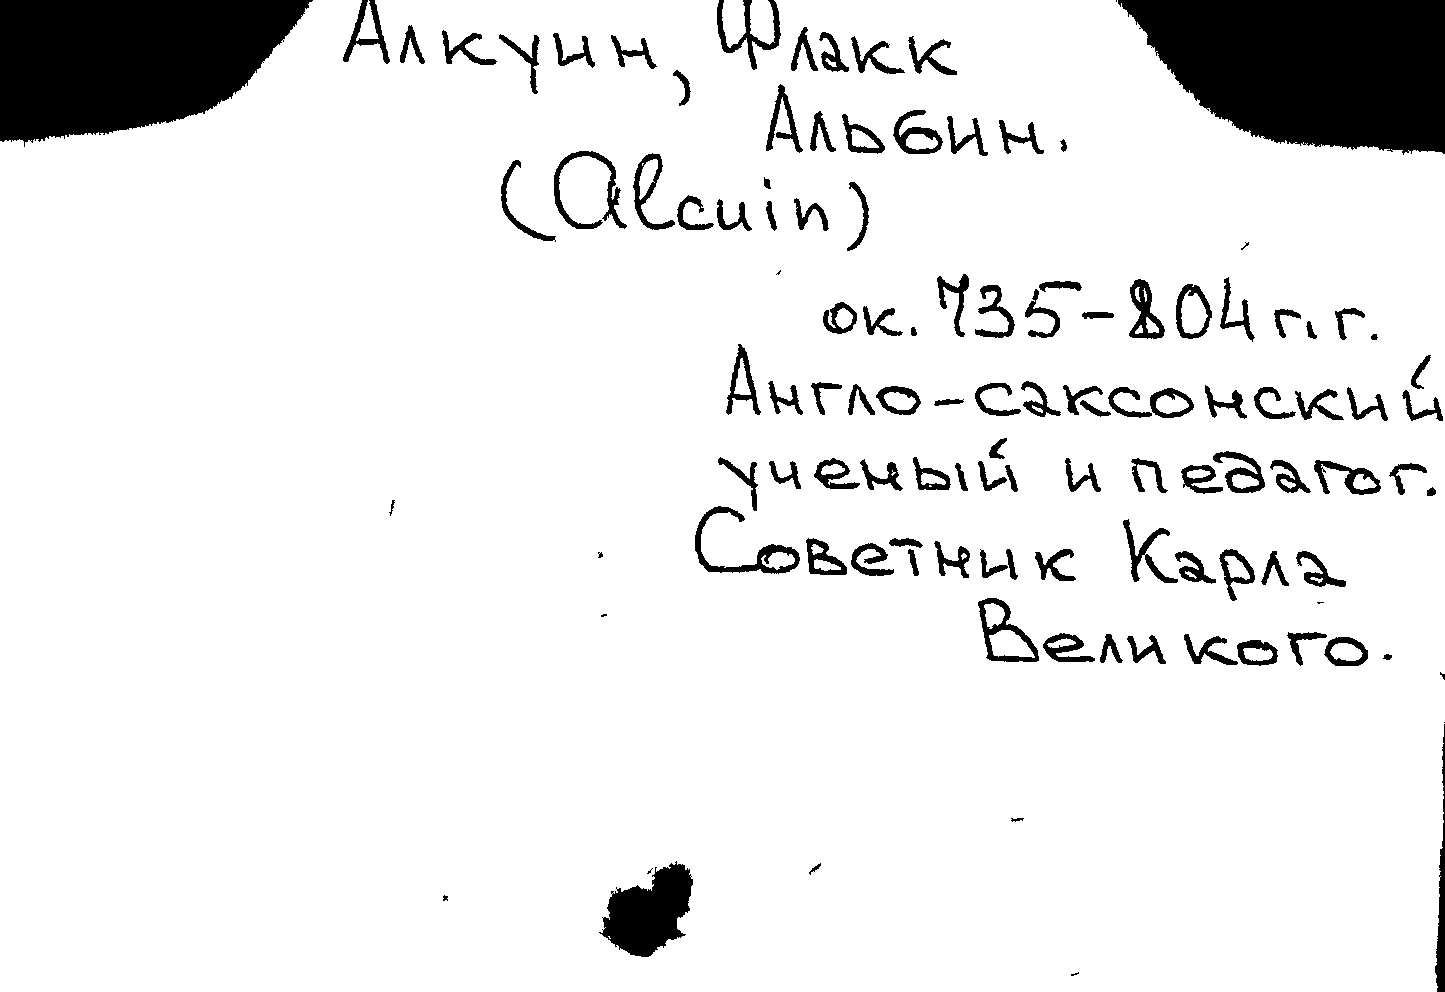 Алкуин, Флакк
Альбин.
(Alcuin)
ок. 735-804 г.г.
Англо-саксонский
ученый и педагог.
Советник Карла
Великого.